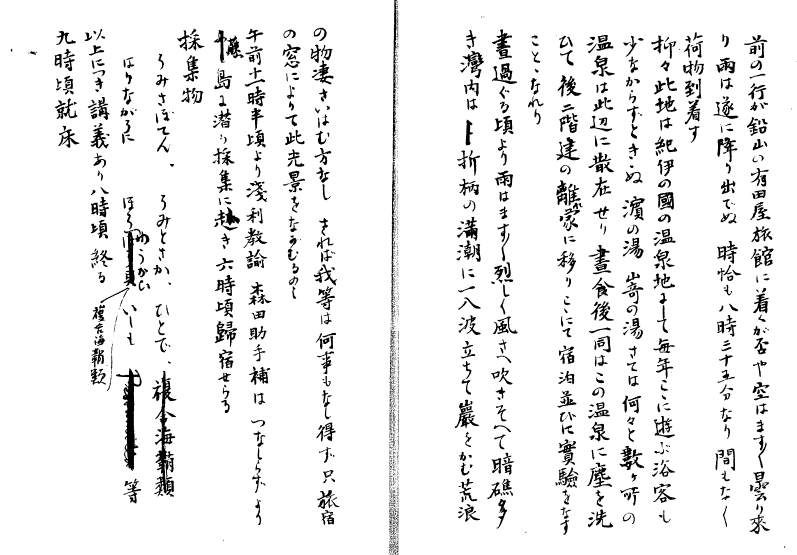 前の一行が鉛山の有田屋旅館に着くが否や空はます〱曇り来
り雨は遂に降り出でぬ 時恰も八時三十五分なり 間もなく
荷物到着す
抑々此地は紀伊の國の温泉地にして毎年ここに遊ぶ浴客も
少なからずときゝぬ 濱の湯 崎の湯さては何々と數ヶ所の
温泉は此辺に散在せり 晝食後一同はこの温泉に塵を洗
ひて 後二階建の離家に移りここにて宿泊並びに實驗をなす
こととなれり
晝過ぐる頃より雨はます〱烈しく風さへ吹きそへて暗礁多
き灣内は 折柄の満潮に一入波立ちて巖をかむ荒浪
の物凄さいはむ方なし されば我等は何事もなし得ず只旅宿
の窓によりて此光景をながむるのみ
午前十一時半頃より淺利教諭 森田助手補は つなしらずより
島に潜り採集に赴き六時頃歸宿せらる
採集物
うみさぼてん、 うみとさか、ひとで、複合海鞘類
はりながうに ほうしゆうがひ いしも 等
複合海鞘類
以上につき講義あり八時頃終る
九時頃就床